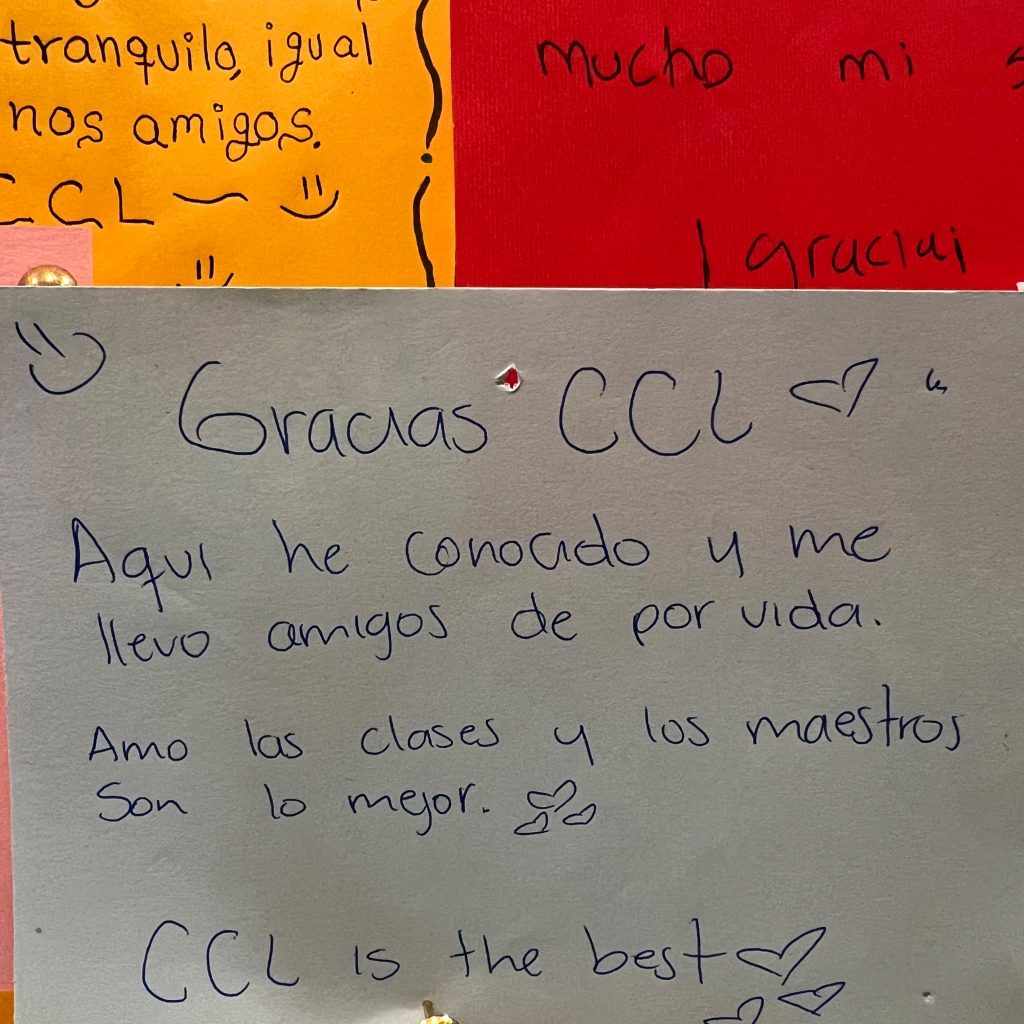 tranquilo, igual
nos amigos.
CCL
mucho mi
¡gracias!
Gracias CCL
Aqui he conocido y me
llevo amigos de por vida.
Amo las clases y los maestros
Son lo mejor.
CCL is the best